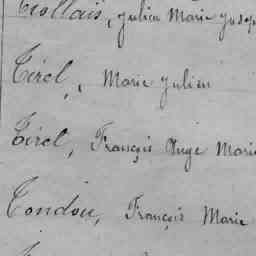 Trollais, Julien Marie Josep
Tirel, Marie Julien
Tirel, François Ange Marie
Tondou, François Marie